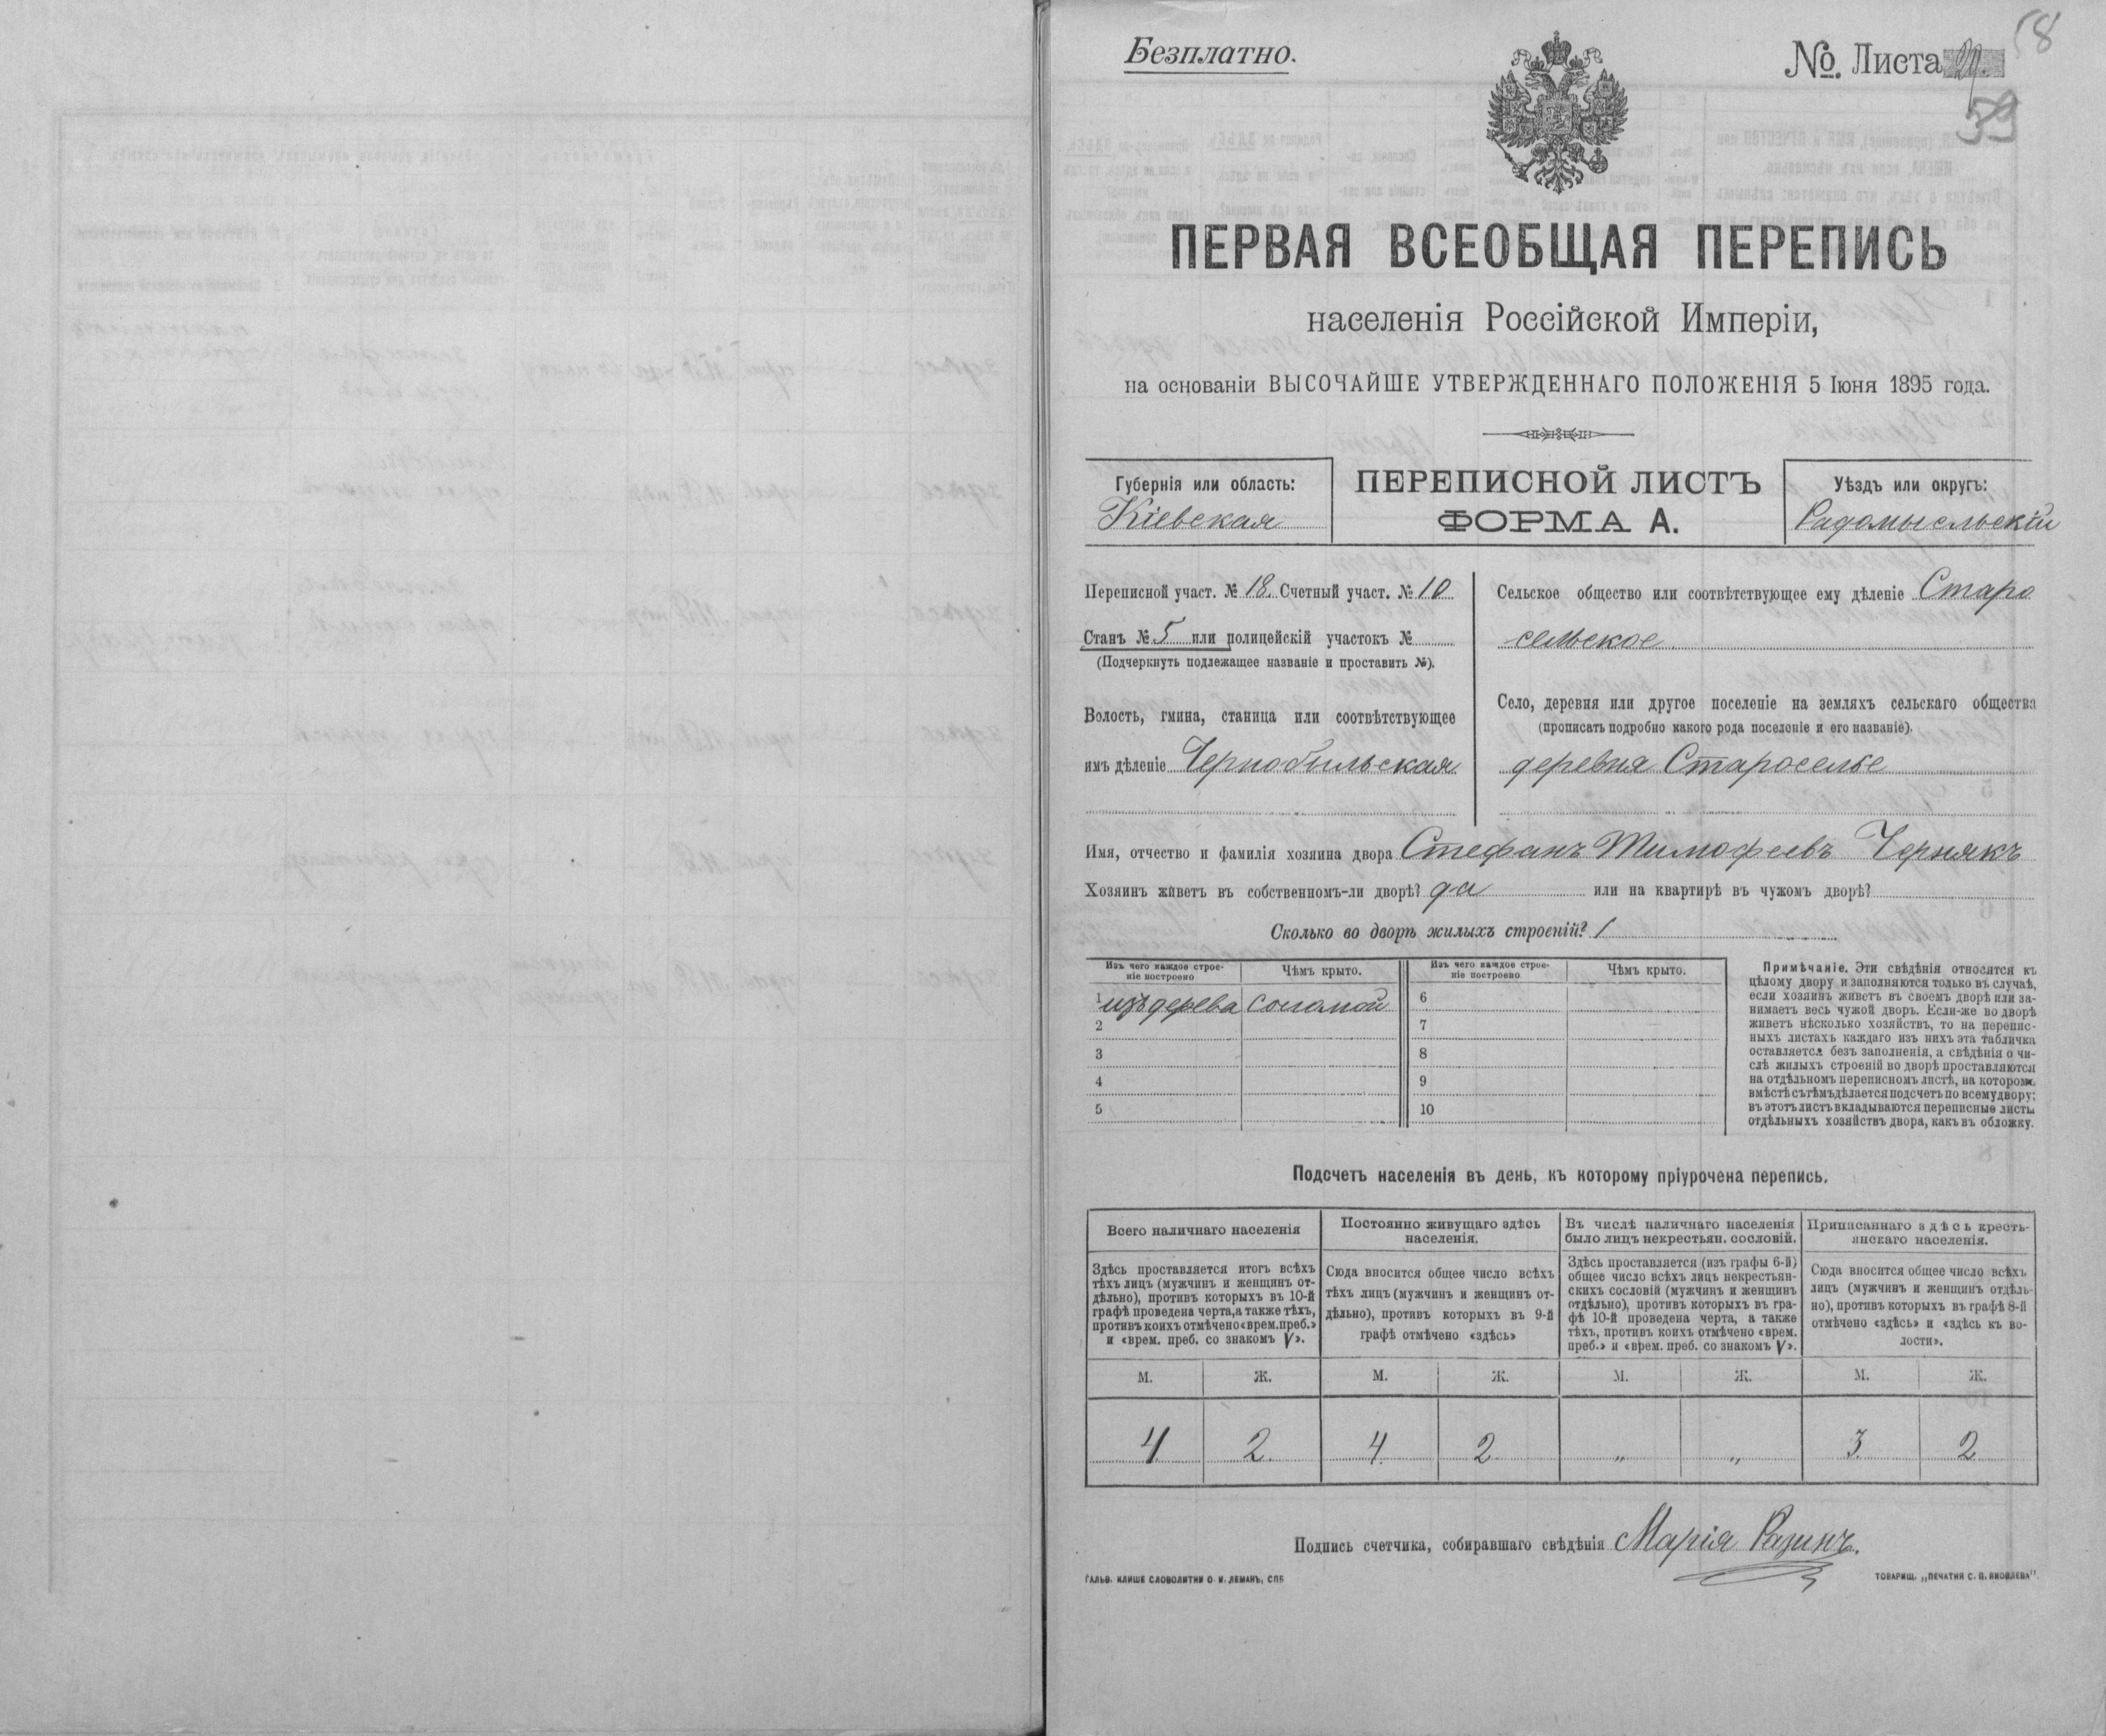 Безплатно.
№. Листа
58
59
ПЕРВАЯ ВСЕОБЩАЯ ПЕРЕПИСЬ
населенія Россійской Имперіи,
на основаніи ВЫСОЧАЙШЕ УТВЕРЖДЕННАГО ПОЛОЖЕНІЯ 5 Іюня 1895 года.
Губернія или область:
Кіевская
ПЕРЕПИСНОЙ ЛИСТЪ
ФОРМА А.
Уѣздъ или округъ:
Радомысльскій
Переписной участ. № 18. Счетный участ. № 10
Станъ № 5 или полицейскій участокъ №
(Подчеркнуть подлежащее названіе и проставить №).
Волость, гмина, станица или соотвѣтствующее
имъ дѣленіе Чернобыльская
Сельское общество или соотвѣтствующее ему дѣленіе Старо
сельское
Село, деревня или другое поселеніе на земляхъ сельскаго общества
(прописать подробно какого рода поселеніе и его названіе).
деревня Староселье
Имя, отчество и фамилія хозяина двора Стефанъ Тимофеевъ Чернякъ
Хозяинъ живетъ въ собственномъ-ли дворѣ? да или на квартирѣ въ чужомъ дворѣ?
Сколько во дворѣ жилыхъ строеній? 1
Изъ чего каждое строе-
ніе построено
Чѣмъ крыто.
Изъ чего каждое строе-
ніе построено
Чѣмъ крыто.
1 изъ дерева соломой
2
3
4
5
6
7
8
9
10
Примѣчаніе. Эти свѣдѣнія относятся къ
цѣлому двору и заполняются только въ случаѣ,
если хозяинъ живетъ въ своемъ дворѣ или за-
нимаетъ весь чужой дворъ. Если-же во дворѣ
живетъ нѣсколько хозяйствъ, то на перепис-
ныхъ листахъ каждаго изъ нихъ эта табличка
оставляется безъ заполненія, а свѣдѣнія о чи-
слѣ жилыхъ строеній во дворѣ проставляются
на отдѣльномъ переписномъ листѣ, на которомъ
вмѣстѣ съ тѣмъ дѣлается подсчетъ по всему двору;
въ этотъ листъ вкладываются переписные листы
отдѣльныхъ хозяйствъ двора, какъ въ обложку.
Подсчетъ населенія въ день, къ которому пріурочена перепись.
Всего наличнаго населенія
Здѣсь проставляется итогъ всѣхъ
тѣхъ лицъ (мужчинъ и женщинъ от-
дѣльно), противъ которыхъ въ 10-й
графѣ проведена черта, а также тѣхъ,
противъ коихъ отмѣчено «врем. преб.»
и «врем. преб. со знакомъ V».
Постоянно живущаго здѣсь
населенія.
Сюда вносится общее число всѣхъ
тѣхъ лицъ (мужчинъ и женщинъ от-
дѣльно), противъ которыхъ въ 9-й
графѣ отмѣчено «здѣсь»
Въ числѣ наличнаго населенія
было лицъ некрестьян. сословій.
Здѣсь проставляется (изъ графы 6-й)
общее число всѣхъ лицъ некрестьян-
скихъ сословій (мужчинъ и женщинъ
отдѣльно), противъ которыхъ въ гра-
фѣ 10-й проведена черта, а также
тѣхъ, противъ коихъ отмѣчено «врем.
преб.» и «врем. преб. со знакомъ V».
Приписаннаго здѣсь кресть-
янскаго населенія.
Сюда вносится общее число всѣхъ
лицъ (мужчинъ и женщинъ отдѣль-
но), противъ которыхъ въ графѣ 8-й
отмѣчено «здѣсь» и «здѣсь къ во-
лости».
М. Ж. М. Ж. М. Ж. М. Ж.
4 2 4 2 „ „ 3 2
Подпись счетчика, собиравшаго свѣдѣнія Марія Разинъ.
ГАЛЬВ. КЛИШЕ СЛОВОЛИТНИ О. И. ЛЕМАНЪ, СПБ
ТОВАРИЩ. „ПЕЧАТНЯ С. П. ЯКОВЛЕВА".